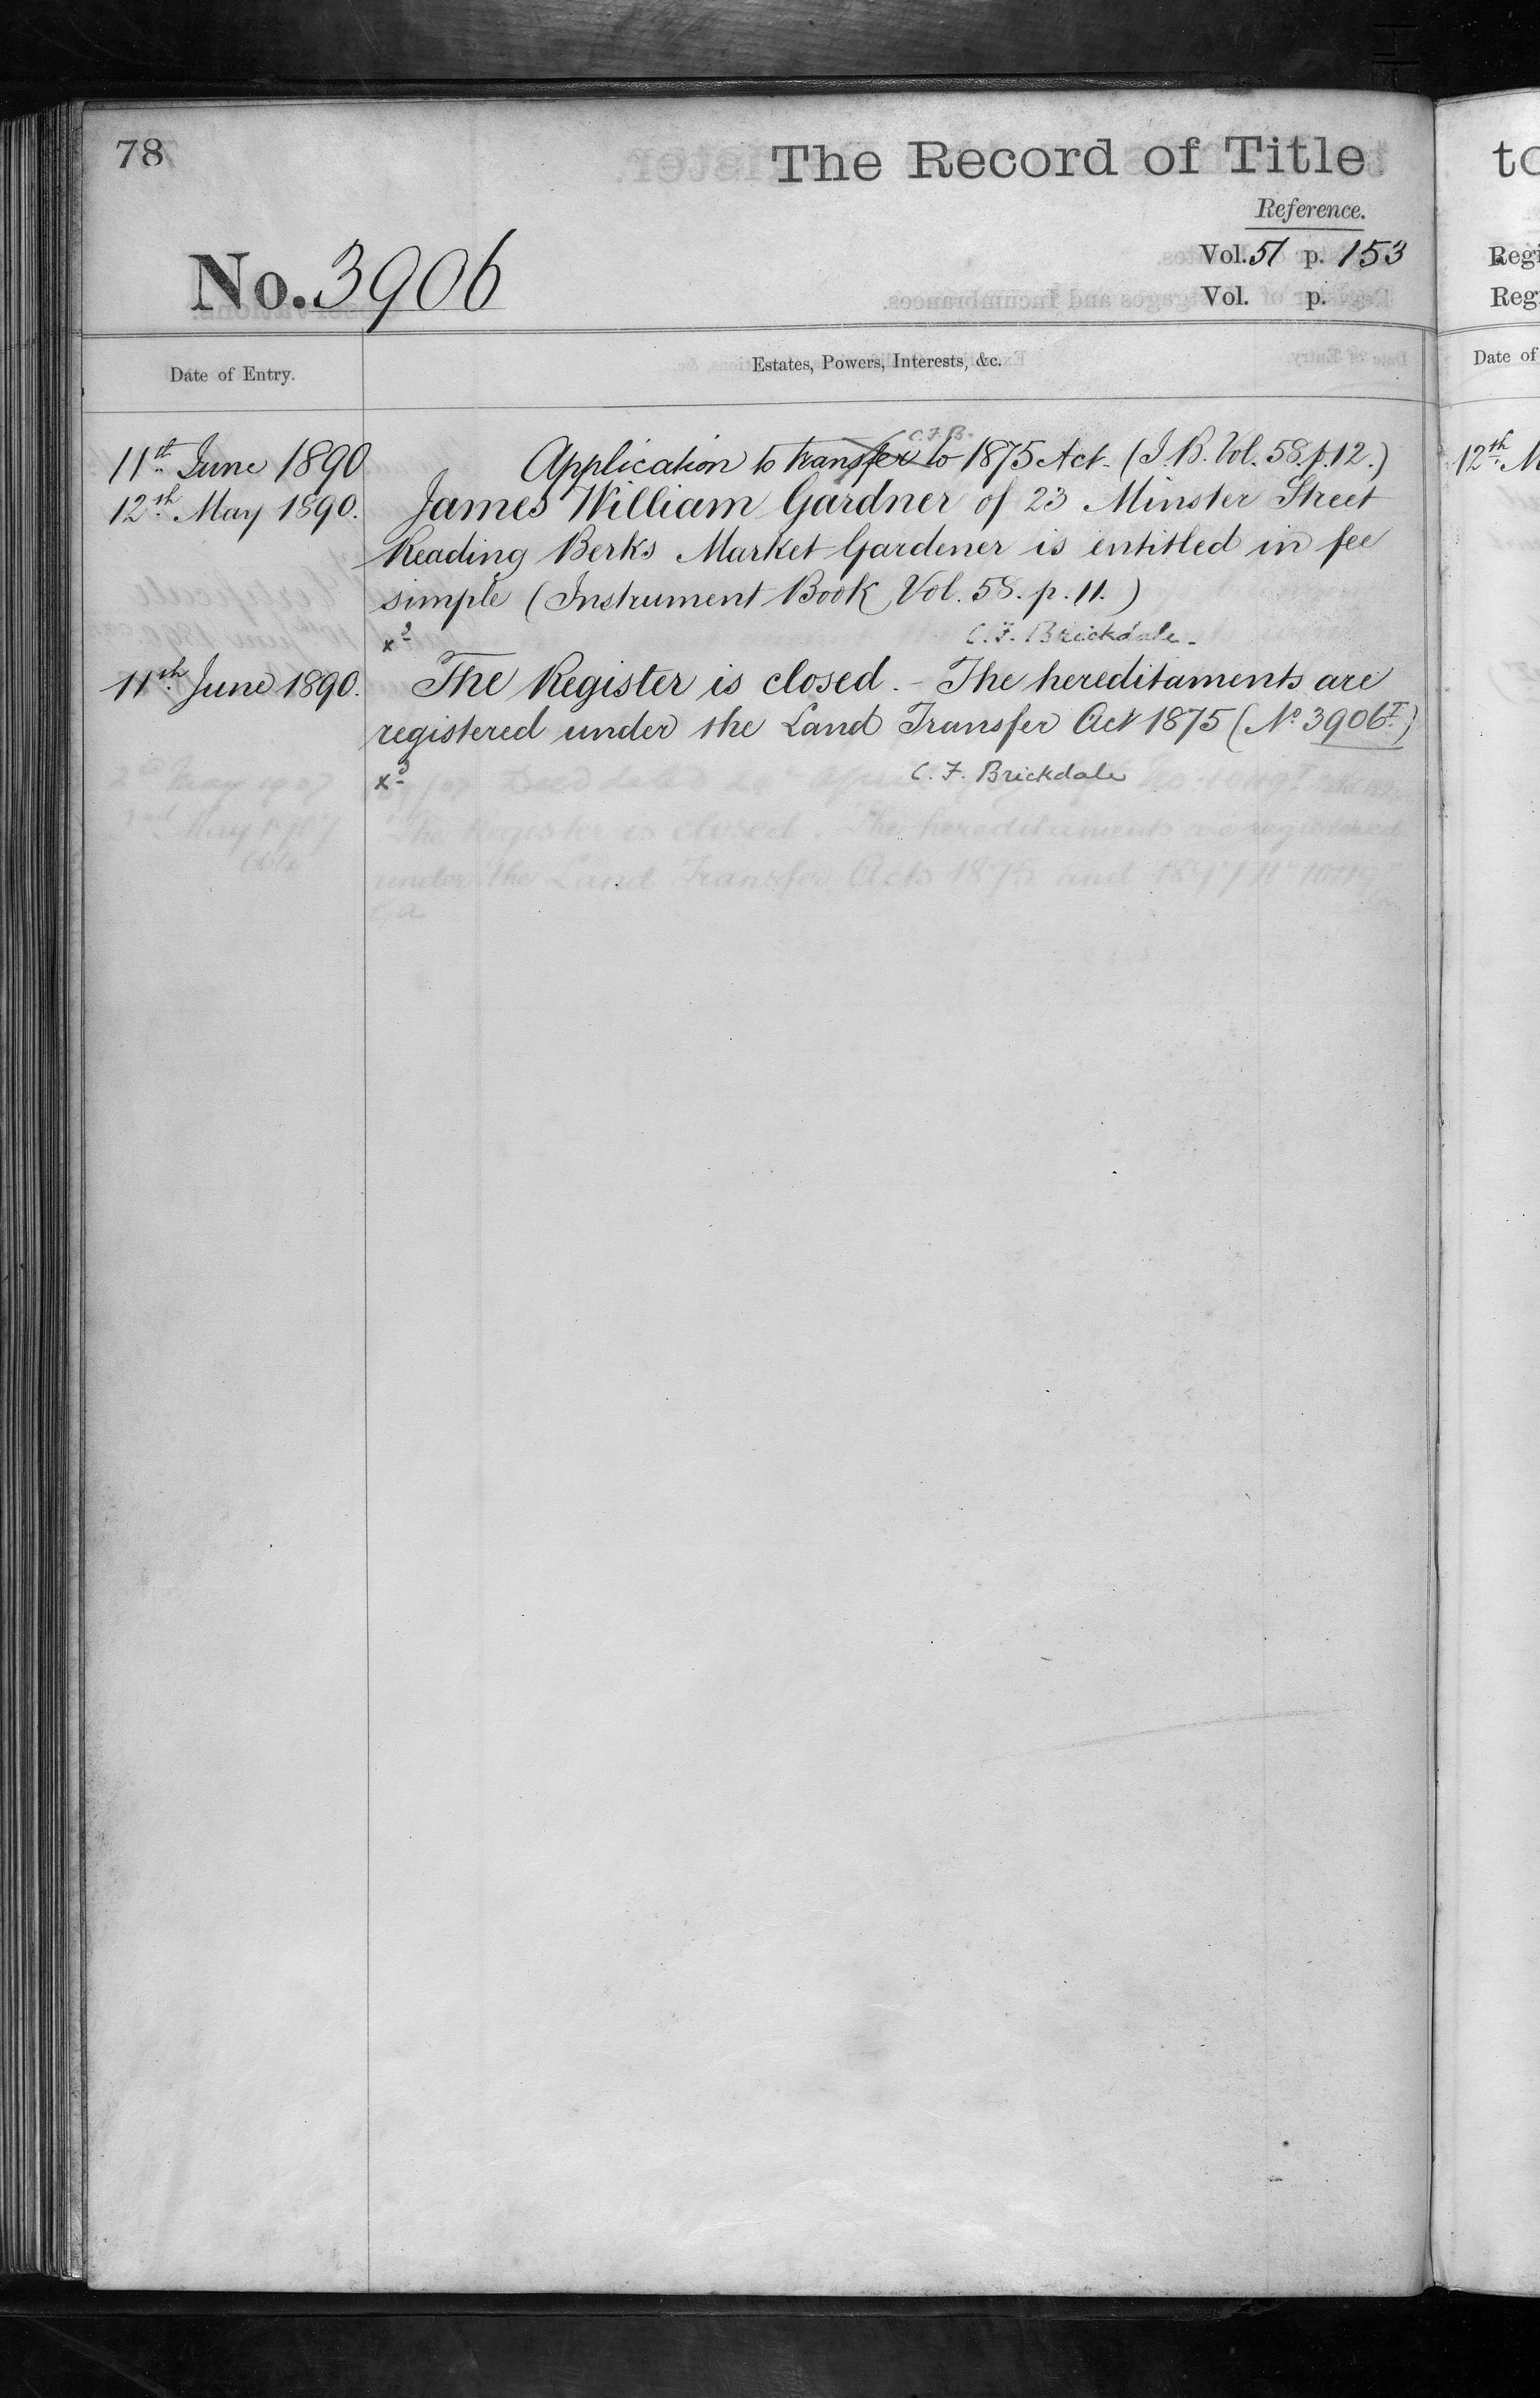 78
The Record of Title
Reference.
Vol. 51 p. 153
Vol. p.
No. 3906
Date of Entry.
Estates, Powers, Interests, &c.
C.F.B.
11th June 1890 Application to transfer to 1875 Act. (I.B. Vol. 58. p. 12.)
12th May 1890. James William Gardner of 23 Minster Street
Reading Berks Market Gardener is entitled in fee
simple (Instrument Book Vol. 58. p. 11.)
C. F. Brickdale.
11th June 1890. The Register is closed. - The hereditaments are
registered under the Land Transfer Act 1875 (No. 3906 I.)
C. F. Brickdale
The Register is closed. The hereditaments registered
under the Land Transfer Acts 1875 and
to
Regi
Reg
Date of
12th M